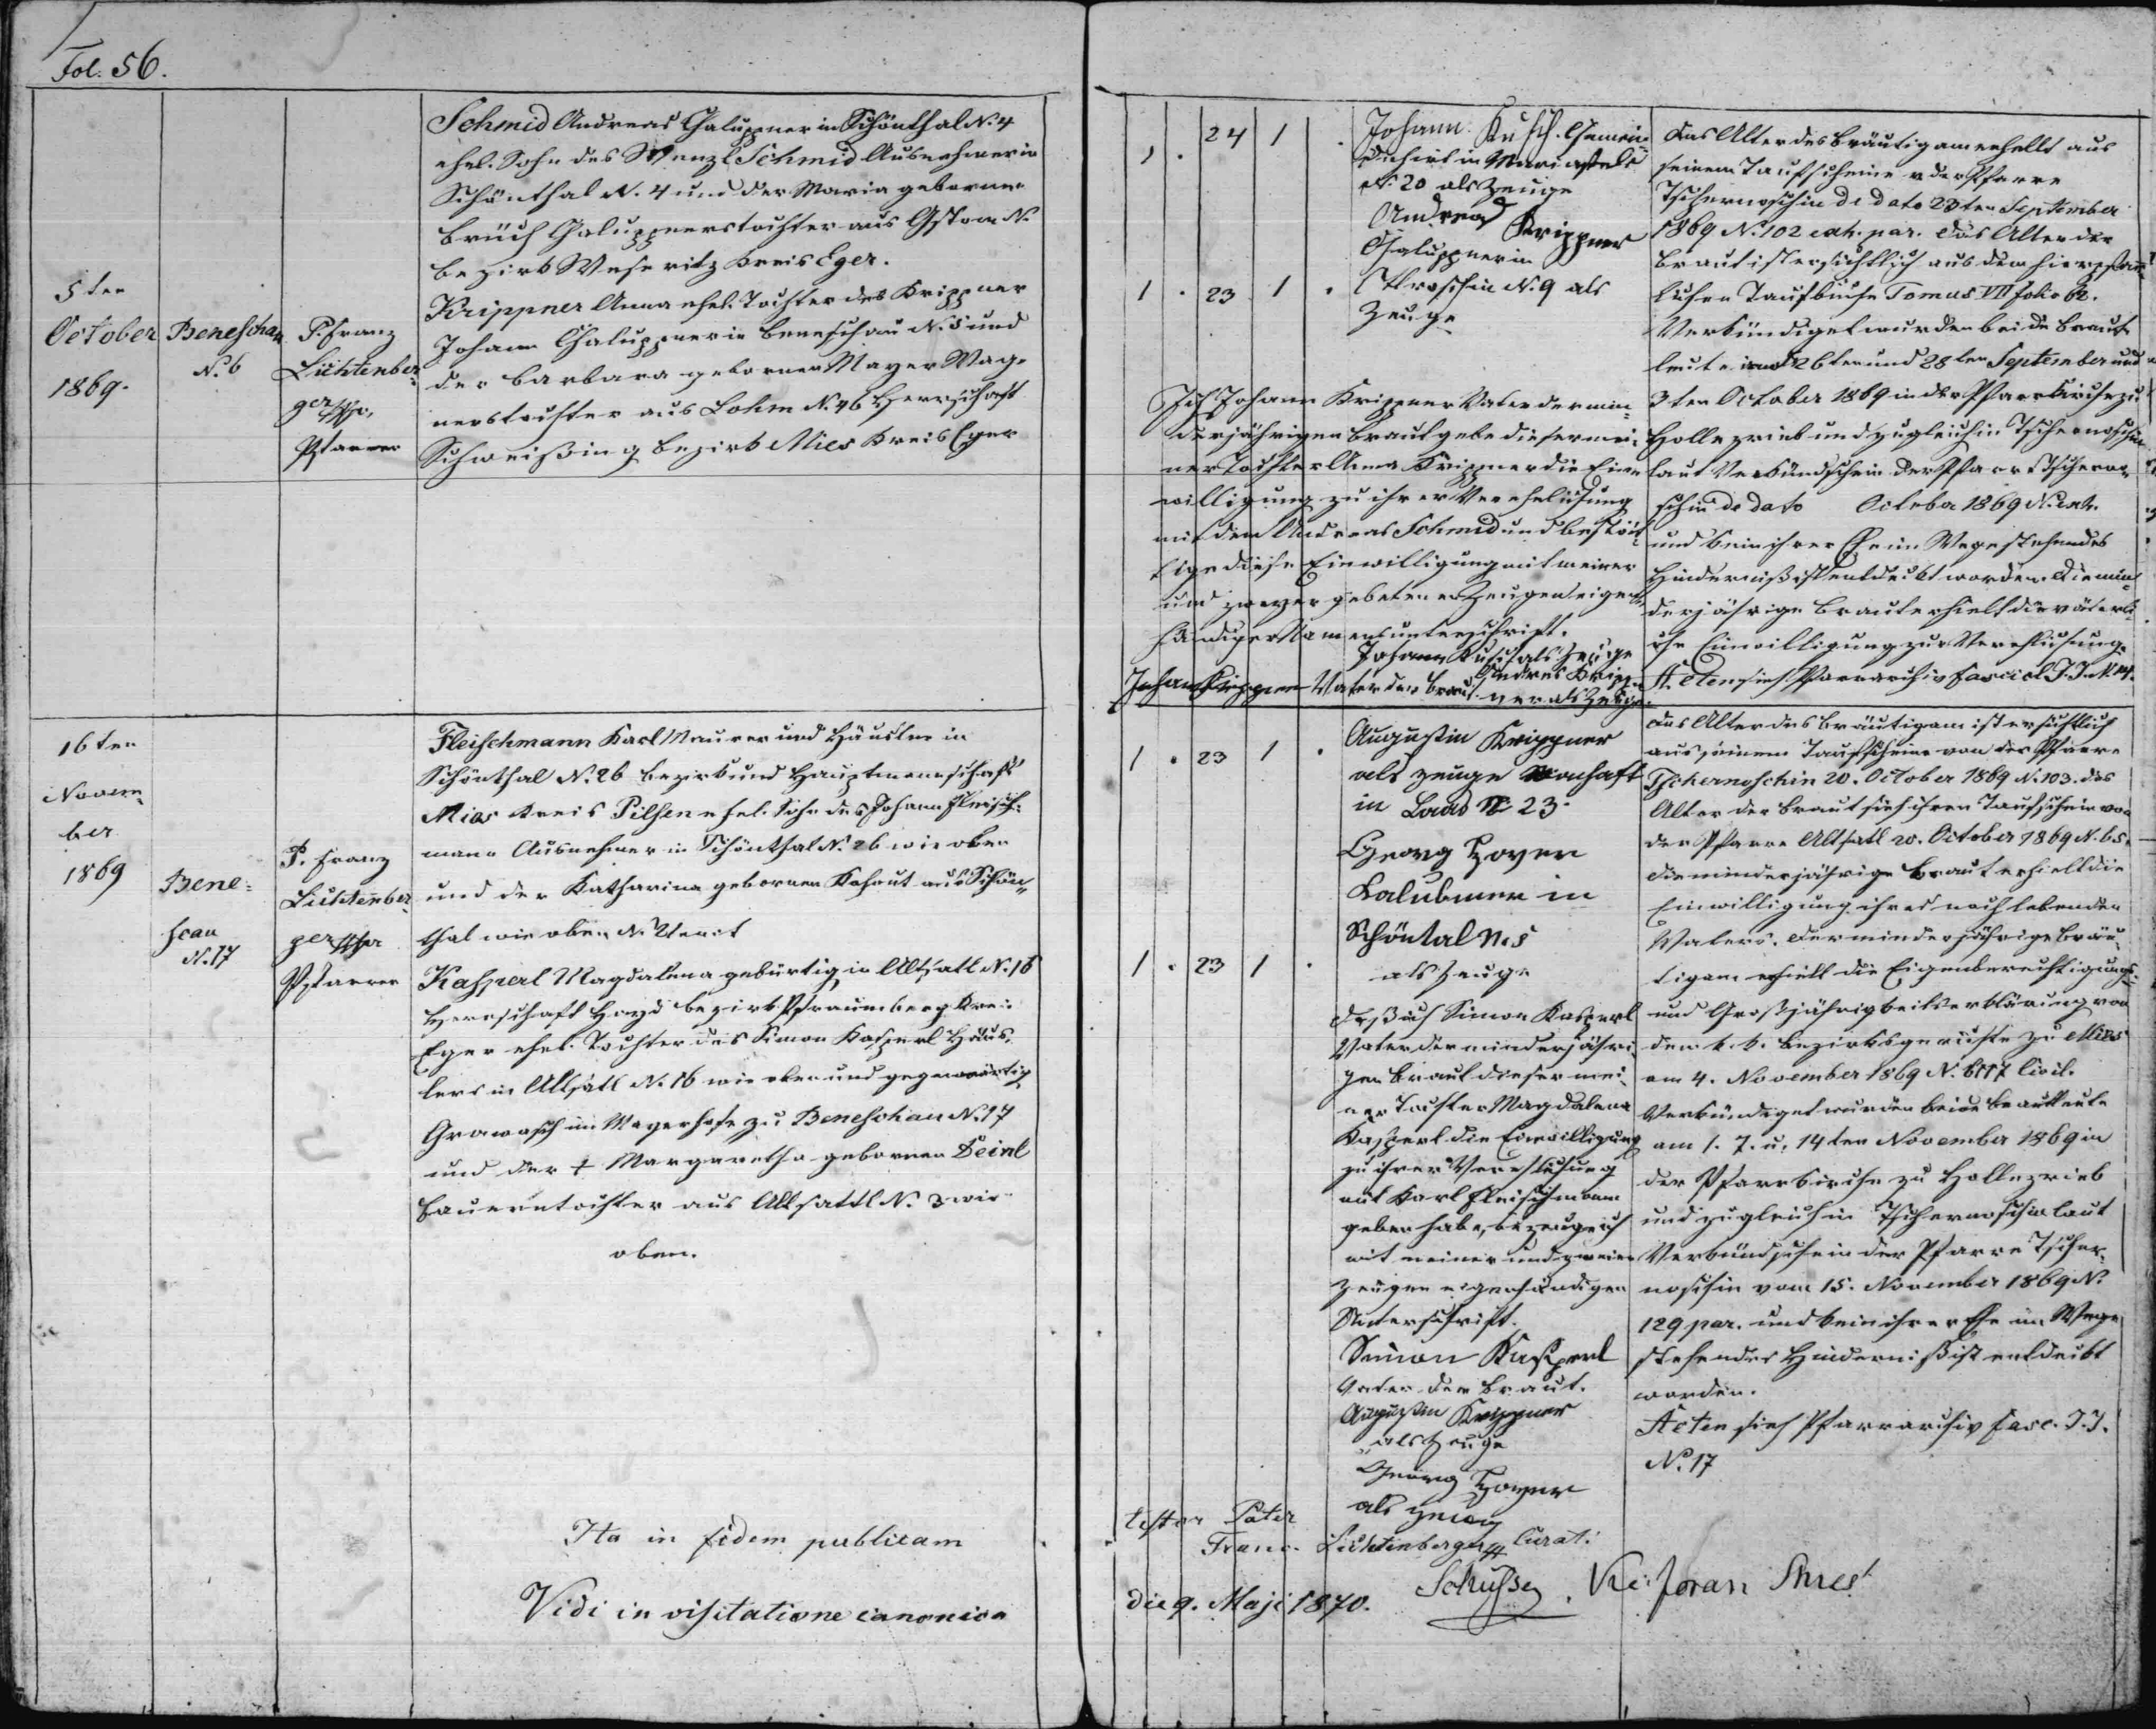 Fol. 56.
5ten
October
1869.
Beneschau
N. 6
P. Franz
Lichtenber
ger
Pfarrer
Schmid Andreas Chaluppner in Schönthal N. 4
ehel. Sohn des Wenzl Schmid Ausnehmer in
Schönthal N. 4 und der Maria geborner
Brüch Chaluppnerstochter aus N.
Bezirk Weseritz Kreis Eger.
Krippner Anna ehel. Tochter des Krippner
Johann Chaluppner in Beneschau N. 5 und
der Barbara geborner Mayer Wag-
nerstochter aus Lohm N. 46 Herrschaft
Schweißing Bezirk Mies Kreis Eger
16ten
Novem
ber
1869
Bene-
scau
N. 17
P. Franz
Lichtenber
ger
Pfarrer
Fleischmann Karl Maurer und Häusler in
Schönthal N. 26 Bezirk und Hauptmannschaft
Mies Kreis Pilsen ehel. Sohn des Johann Fleisch-
mann Ausnehmer in Schönthal N. 26 wie oben
und der Katharina gebornen Kohout aus Schön-
thal wie oben N.
Kasperl Magdalena gebürtig in Altsattl N. 16
Herrschaft Hayd Bezirk Pfraumberg Kreis
Eger ehel. Tochter des Simon Kasperl Häus-
lers in Altsattl N. 16 wie oben und gegenwärtig
im Mayerhofe zu Beneschau N. 17
und der † Margaretha gebornen Deinl
Bauerntochter aus Altsattl N. 3 wie
oben.
Ita in fidem publicam
Vidi in visitatione canonica
1 . 24 1 .
Johann Kusch. Gemein-
dehirt in Mariafels
N. 20 als Zeuge
1 . 23 1 .
Andreas Krippner
Chaluppner in
N. 9 als
Zeuge
Ich Johann Krippner Vater der min-
derjährigen Braut gebe dieser mei-
ner Tochter Anna Krippner die Ein-
willigung zu ihrer Verehelichung
mit dem Andreas Schmid und bestät-
tige diese Einwilligung mit meiner
und zweyer gebetener Zeugen eigen-
händiger Namensunterschrift.
Johann Kusch als Zeuge
Johan Krippner Vater der Braut. Andreas Kripp
ner als Zeuge.
das Alter des Bräutigam erhellt aus
seinem Taufscheine der Pfarre
Tschernoschin de dato 23ten September
1869 N. 102 exh. par. das Alter der
Braut ist ersichtlich aus dem hierpfarr-
lichen Taufbuche Tomus VII folio 62.
Verkündiget wurden beide Braut-
leute am 26ten und 28ten September und
3ten October 1869 in der Pfarrkirche zu
Hollezrieb und zugleich in Tschernoschin
laut Verkündschein der Pfarr Tscherno-
schin de dato October 1869 N. exh.
und kein ihrer Ehe im Wege stehendes
Hinderniß ist entdeckt worden. Die min-
derjährige Braut erhielt die väterli-
che Einwilligung zur Verehlichung.
Acten sieh Pfarrarchiv Fascicl J.J. N. 14.
1 . 23 1 .
Augustin Krippner
als Zeuge wonhaft
in N 23.
1 . 23 1 .
Georg Hoyer
Kalubner in
Schöntal N. 5
als Zeuge
daß ich Simon Kasperl
Vater der minderjähri-
gen Braut dieser mei-
ner Tochter Magdalena
Kasperl die Einwilligung
zu ihrer Verehlichung
mit Karl Fleischmann
geben habe, bezeuge ich
mit meiner und zweier
Zeugen eigenhändigen
Unterschrift.
Simon Kasperl
Vater der Braut.
Augustin Krippner
als Zeuge
Georg Hoyer
als Zeuge
das Alter des Bräutigam ist ersichtlich
aus seinem Taufscheine von der Pfarre
Tschernoschin 20. October 1869 N. 103. das
Alter der Braut sieh ihren Taufschein von
der Pfarre Altsattl 20. October 1869 N. 65.
Die minderjährige Braut erhielt die
Einwilligung ihres noch lebenden
Vaters. der minderjährige Bräu-
tigam erhielt die Eigenberechtigungs-
und Großjährigkeitserklärung von
dem k. k. Bezirksgerichte zu Mies
am 4. November 1869 N. 6117 Civil.
Verkündiget wurden beide Brautleute
am 1. 7. u. 14ten November 1869 in
der Pfarrkirche zu Hollezrieb
und zugleich in Tschernoschin laut
Verkündschein der Pfarre Tscher-
noschin vom 15. November 1869 N.
129 par. und kein ihrer Ehe im Wege
stehendes Hinderniß ist entdeckt
worden.
Acten sieh Pfarrarchiv Fasc. J.J.
N. 17
testor Pater
Franc. Lichtenberger Curat.
die 9. Maji 1870.